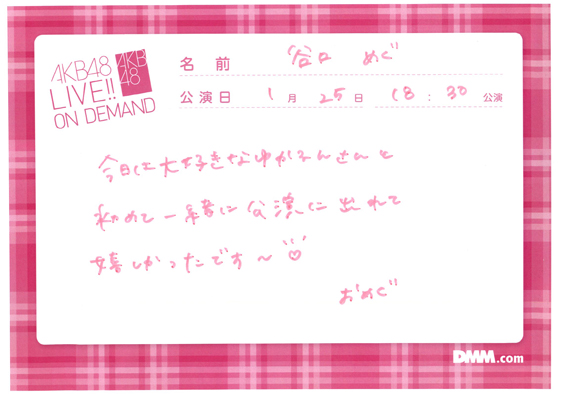 AKB48
LIVE!!
ON DEMAND
AKB
48
名前 谷口 めぐ
公演日 1月25日 18:30公演
今日は大好きなゆかるんさんと
初めて一緒に公演に出れて
嬉しかったです〜♡
おめぐ
DMM.com